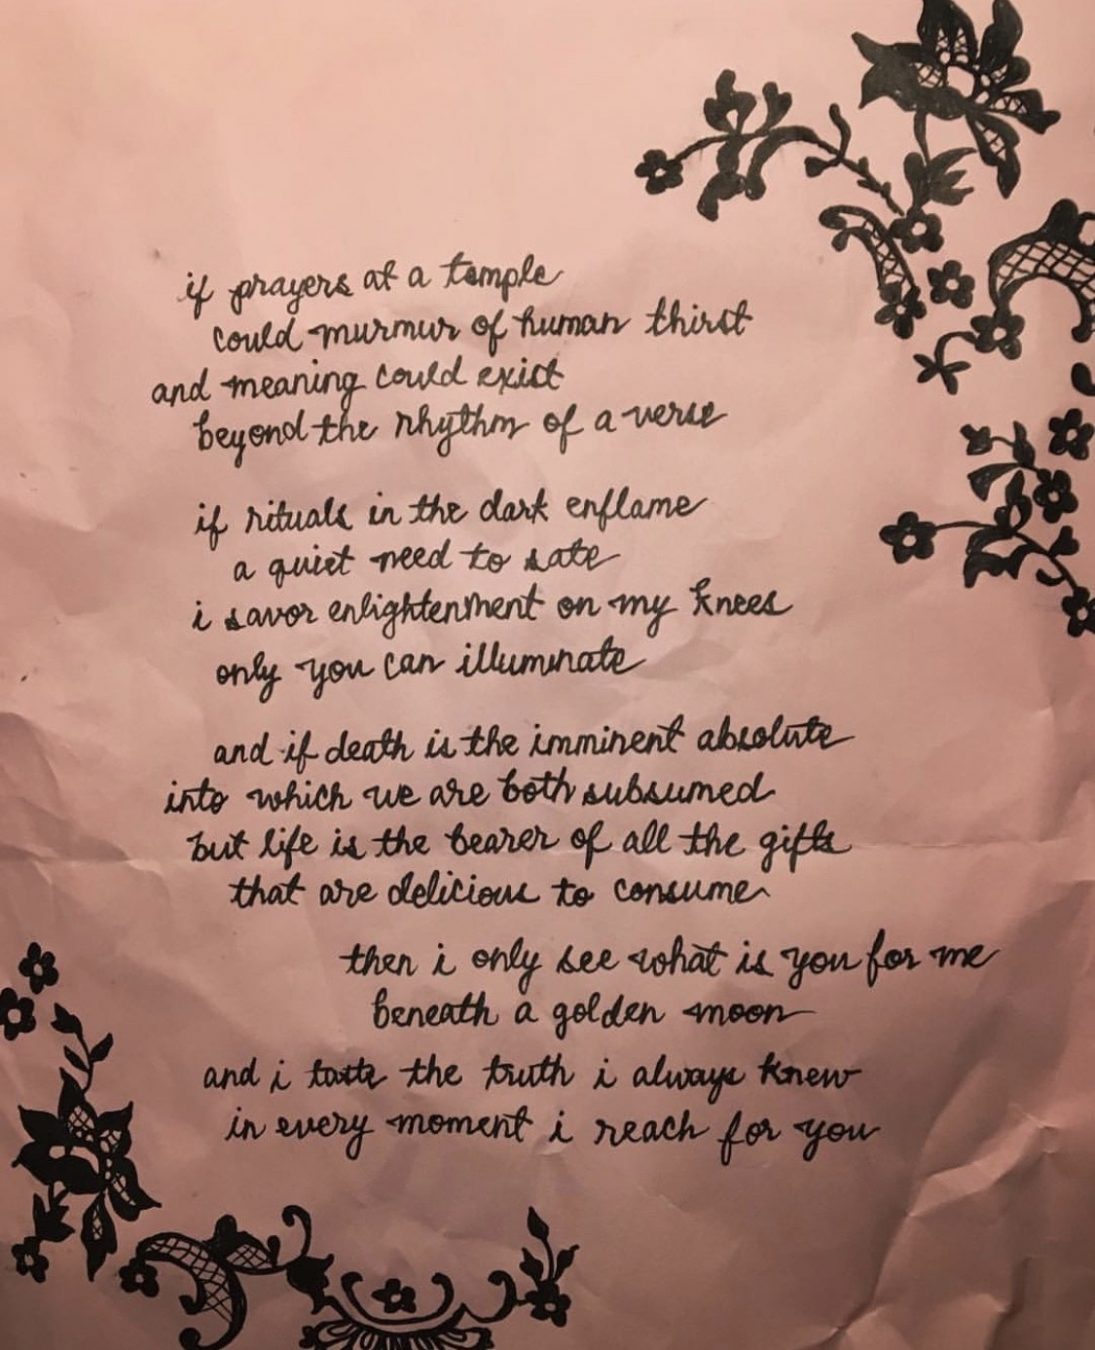 if prayers at a temple
could murmur of human thirst
and meaning could exist
beyond the rhythm of a verse
if rituals in the dark enflame
a quiet need to sate
i savor enlightenment on my knees
only you can illuminate
and if death is the imminent absolute
into which we are both subsumed
but life is the bearer of all the gifts
that are delicious to consume
then i only see what is you for me
beneath a golden moon
and i taste the truth i always knew
in every moment i reach for you